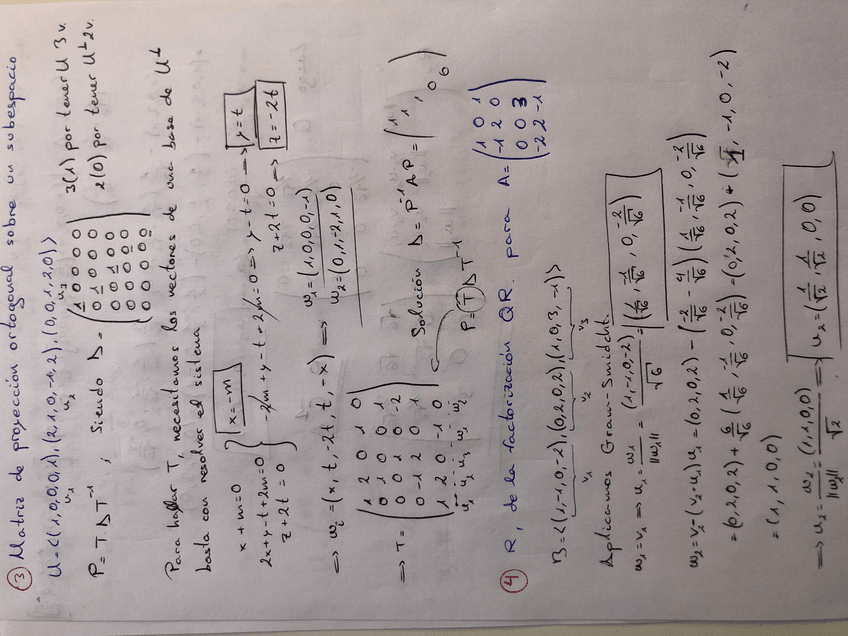 ③ Matriz de proyección ortogonal sobre un subespacio
U = <(1,0,0,0,1), (2,1,0,-1,2), (0,0,1,2,0)>
u₁ u₂ u₃
P = T Δ T⁻¹ ; Siendo Δ =
1 0 0 0 0
0 1 0 0 0
0 0 1 0 0
0 0 0 0 0
0 0 0 0 0
3(1) por tener U 3 v.
2(0) por tener U⊥ 2v.
Para hallar T, necesitamos los vectores de una base de U⊥
basta con resolver el sistema
x + m = 0
2x + y - t + 2m = 0
z + 2t = 0
x = -m
-2m + y - t + 2m = 0 => y - t = 0 => y = t
z + 2t = 0 => z = -2t
=> wᵢ = (x, t, -2t, t, -x) =>
w₁ = (1,0,0,0,-1)
w₂ = (0,1,-2,1,0)
=> T =
1 2 0 1 0
0 1 0 0 1
0 0 1 0 -2
0 -1 2 0 1
1 2 0 -1 0
u₁ u₂ u₃ w₁ w₂
Solución Δ = P⁻¹ A P = (1 1 , 0 0)
P = T Δ T⁻¹
④ R, de la factorización QR. para A =
1 0 1
-1 2 0
0 0 3
-2 2 -1
B = <(1,-1,0,-2), (0,2,0,2), (1,0,3,-1)>
v₁ v₂ v₃
Aplicamos Gram-Smidcht.
w₁ = v₁ => u₁ = w₁/||w₁|| = (1,-1,0,-2)/√6 = (1/√6, -1/√6, 0, -2/√6)
w₂ = v₂ - (v₂·u₁) u₁ = (0,2,0,2) - (-2/√6 - 4/√6)(1/√6, -1/√6, 0, -2/√6)
= (0,2,0,2) + 6/√6 (1/√6, -1/√6, 0, -2/√6) = (0,2,0,2) + (1, -1, 0, -2)
= (1, 1, 0, 0)
=> u₂ = w₂/||w₂|| = (1,1,0,0)/√2 => u₂ = (1/√2, 1/√2, 0, 0)